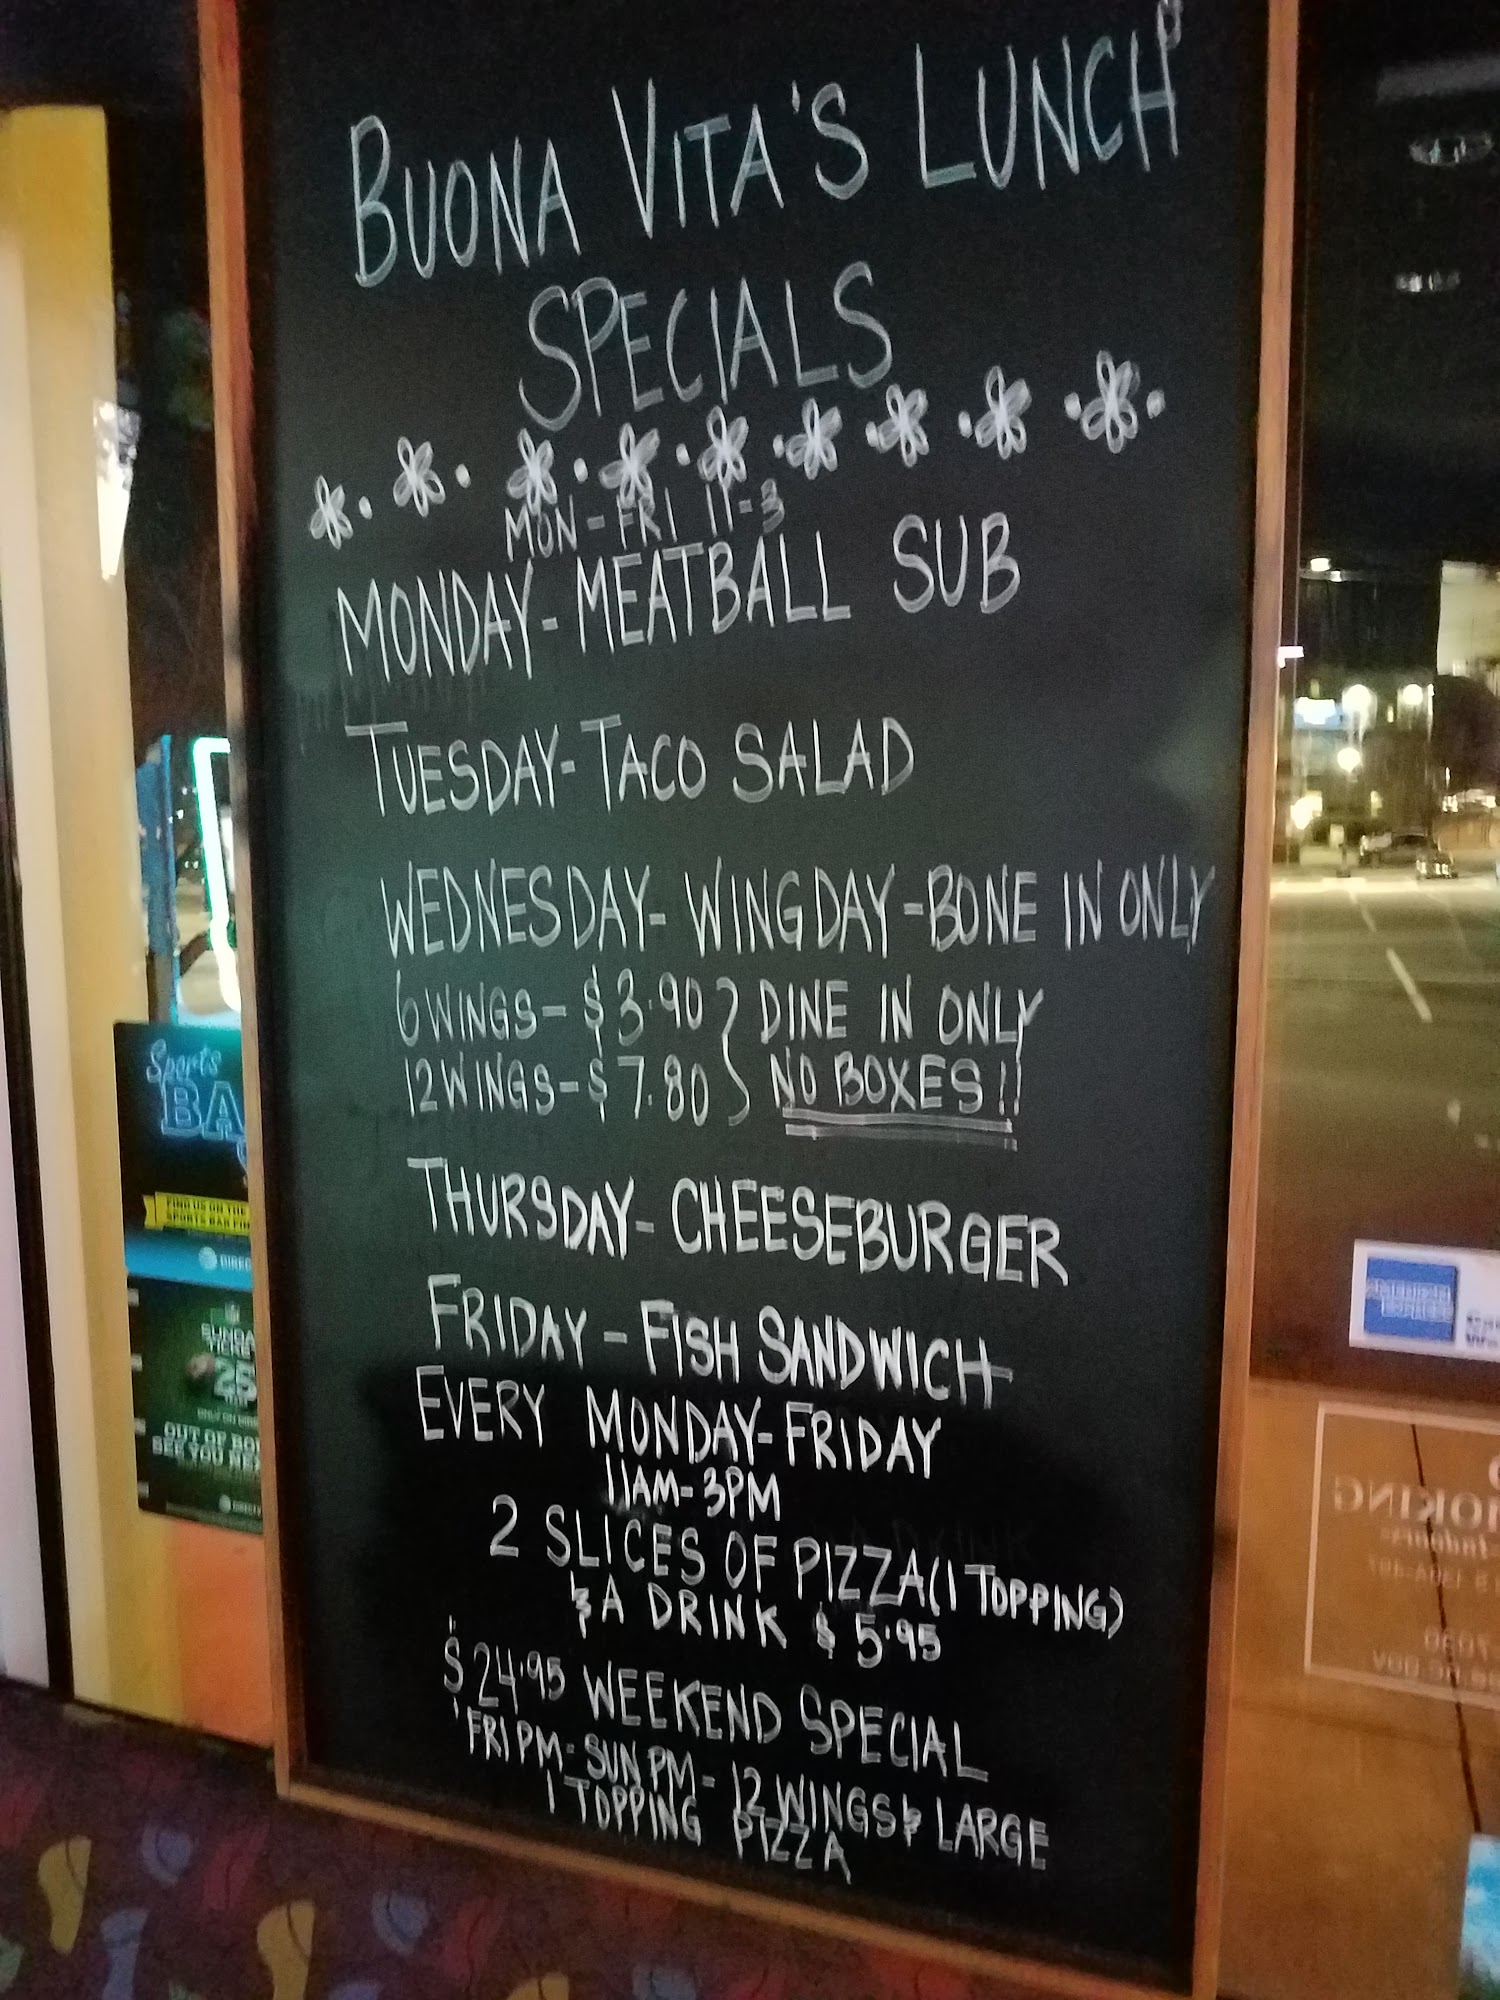 BUONA VITA'S LUNCH
SPECIALS
MON-FRI 11-3
MONDAY-MEATBALL SUB
TUESDAY-TACO SALAD
WEDNESDAY-WINGDAY-BONE IN ONLY
6 WINGS-$3.90 } DINE IN ONLY
12 WINGS-$7.80 } NO BOXES!!
THURSDAY-CHEESEBURGER
FRIDAY-FISH SANDWICH
EVERY MONDAY-FRIDAY
11AM-3PM
2 SLICES OF PIZZA (1 TOPPING)
& A DRINK $5.95
$24.95 WEEKEND SPECIAL
FRI PM-SUN PM-12 WINGS & LARGE
1 TOPPING PIZZA
Sports
BA
FIND US ON THE
SPORTS BAR FIN
DIREC
NFL
SUNDA
TICKE
25
OUT OF BO
SEE YOU NE
DIRECTV
AMERICAN
EXPRESS